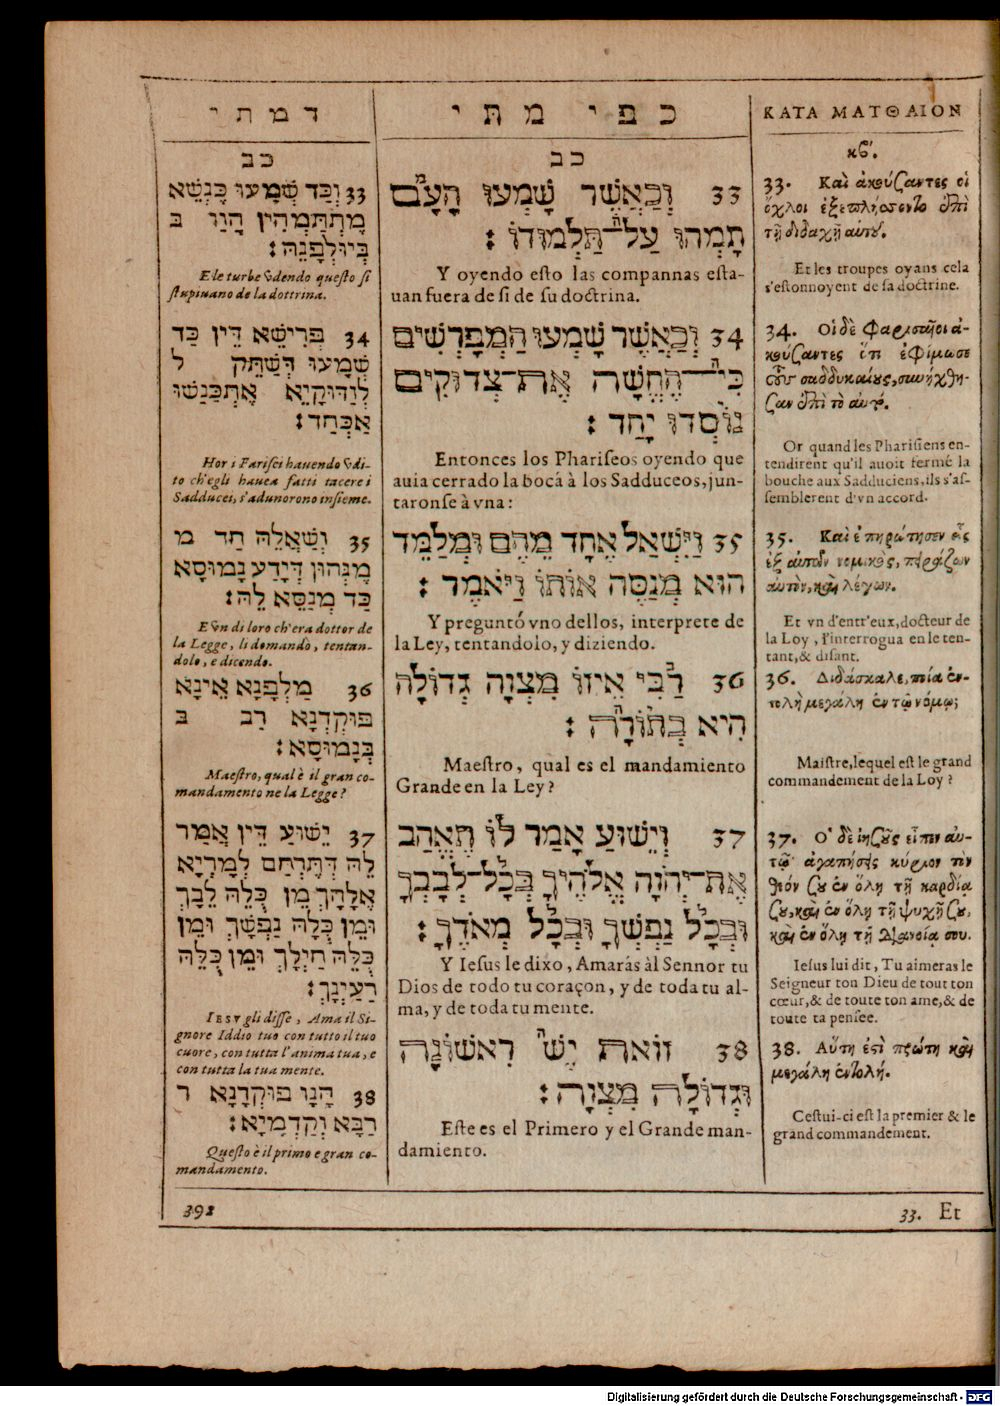 דמתי
כב
33 וְכַד שְׁמַעוּ כֶּנְשֵׁא
מֶתְתַּמְהִין הֲווַ ב
בְּיוּלְפָנֵהּ:
E le turbe vdendo questo si
stupiuano de la dottrina.
34 פְּרִישֵׁא דֵּין כַּד
שְׁמַעוּ דְּשַׁתֵּק ל
לְזַדּוּקָיֵא אֶתְכַּנַשׁוּ
אַכְּחַד:
Hor i Farisei hauendo vdi-
to ch'egli hauea fatti tacere i
Sadducei, s'adunorono insieme.
35 וְשַׁאֲלֵהּ חַד מ
מֶנְּהוּן דְּיָדַע נָמוּסָא
כַּד מְנַסֵּא לֵהּ:
E vn di loro ch'era dottor de
la Legge, li domandò, tentan-
dolo, e dicendo.
36 מַלְפָנָא אֵינָא
פּוּקְדָנָא רַב ב
בְּנָמוּסָא:
Maestro, qual è il gran co-
mandamento ne la Legge?
37 יֵשׁוּעַ דֵּין אֲמַר
לֵהּ דְּתֶרְחַם לְמָרְיָא
אֲלָהָךְ מֵן כֻּלֵּהּ לֵבָךְ
וּמֵן כֻּלָּהּ נַפְשָׁךְ וּמֵן
כֻּלֵּהּ חַיְלָךְ וּמֵן כֻּלֵּהּ
רַעְיָנָךְ:
IESV gli disse, Ama il Si-
gnore Iddio tuo con tutto il tuo
cuore, con tutta l'anima tua, e
con tutta la tua mente.
38 הָנָו פּוּקְדָנָא ר
רַבָּא וְקַדְמָיָא:
Questo è il primo e gran co-
mandamento.
392
כפי מתי
כב
33 וְכַאֲשֶׁר שָׁמְעוּ הָעָם
תָמְהוּ עַל־תַּלְמוּדוֹ:
Y oyendo esto las compannas esta-
uan fuera de si de su doctrina.
34 וְכַאֲשֶׁר שָׁמְעוּ הַמְּפָרְשִׁים
כִּי־הֶחֱשָׁה אֶת־צְדוּקִים
נוֹסְדוּ יָחַד:
Entonces los Phariseos oyendo que
auia cerrado la boca à los Sadduceos, jun-
taronse à vna:
35 וַיִּשְׁאַל אֶחָד מֵהֶם וּמְלַמֵּד
הוּא מְנַסֶּה אוֹתוֹ וַיֹּאמֶר:
Y preguntó vno dellos, interprete de
la Ley, tentandolo, y diziendo.
36 רַבִּי אֵיזוֹ מִצְוָה גְדוֹלָה
הִיא בְּתוֹרָה:
Maestro, qual es el mandamiento
Grande en la Ley?
37 וְיֵשׁוּעַ אָמַר לוֹ תֶּאֱהַב
אֶת־יְהוָֹה אֱלֹהֶיךָ בְּכָל־לְבָבְךָ
וּבְכָל נַפְשְׁךָ וּבְכָל מְאֹדֶךָ:
Y Iesus le dixo, Amarás àl Sennor tu
Dios de todo tu coraçon, y de toda tu al-
ma, y de toda tu mente.
38 זוֹאת יֵשׁ רִאשׁוֹנָה
וּגְדוֹלָה מִצְוָה:
Este es el Primero y el Grande man-
damiento.
ΚΑΤΑ ΜΑΤΘΑΙΟΝ
κβ'.
33. Καὶ ἀκούσαντες οἱ
ὄχλοι ἐξεπλήσσοντο ἐπὶ
τῇ διδαχῇ αὐτοῦ.
Et les troupes oyans cela
s'estonnoyent de sa doctrine.
34. Οἱ δὲ Φαρισαῖοι ἀ-
κούσαντες ὅτι ἐφίμωσε
τοὺς σαδδυκαίους, συνήχθη-
σαν ἐπὶ τὸ αὐτό.
Or quand les Pharisiens en-
tendirent qu'il auoit fermé la
bouche aux Sadduciens, ils s'as-
semblerent d'vn accord.
35. Καὶ ἐπηρώτησεν εἷς
ἐξ αὐτῶν νομικὸς, πειράζων
αὐτὸν, καὶ λέγων.
Et vn d'entr'eux, docteur de
la Loy, l'interrogua en le ten-
tant, & disant.
36. Διδάσκαλε, ποία ἐν-
τολὴ μεγάλη ἐν τῷ νόμῳ;
Maistre, lequel est le grand
commandement de la Loy?
37. Ὁ δὲ ἰησοῦς εἶπεν αὐ-
τῷ· ἀγαπήσεις κύριον τὸν
θεόν σου ἐν ὅλῃ τῇ καρδίᾳ
σου, καὶ ἐν ὅλῃ τῇ ψυχῇ σου,
καὶ ἐν ὅλῃ τῇ διανοίᾳ σου.
Iesus lui dit, Tu aimeras le
Seigneur ton Dieu de tout ton
cœur, & de toute ton ame, & de
toute ta pensee.
38. Αὕτη ἐστὶ πρώτη καὶ
μεγάλη ἐντολή.
Cestui-ci est la premier & le
grand commandement.
33. Et
Digitalisierung gefördert durch die Deutsche Forschungsgemeinschaft - DFG